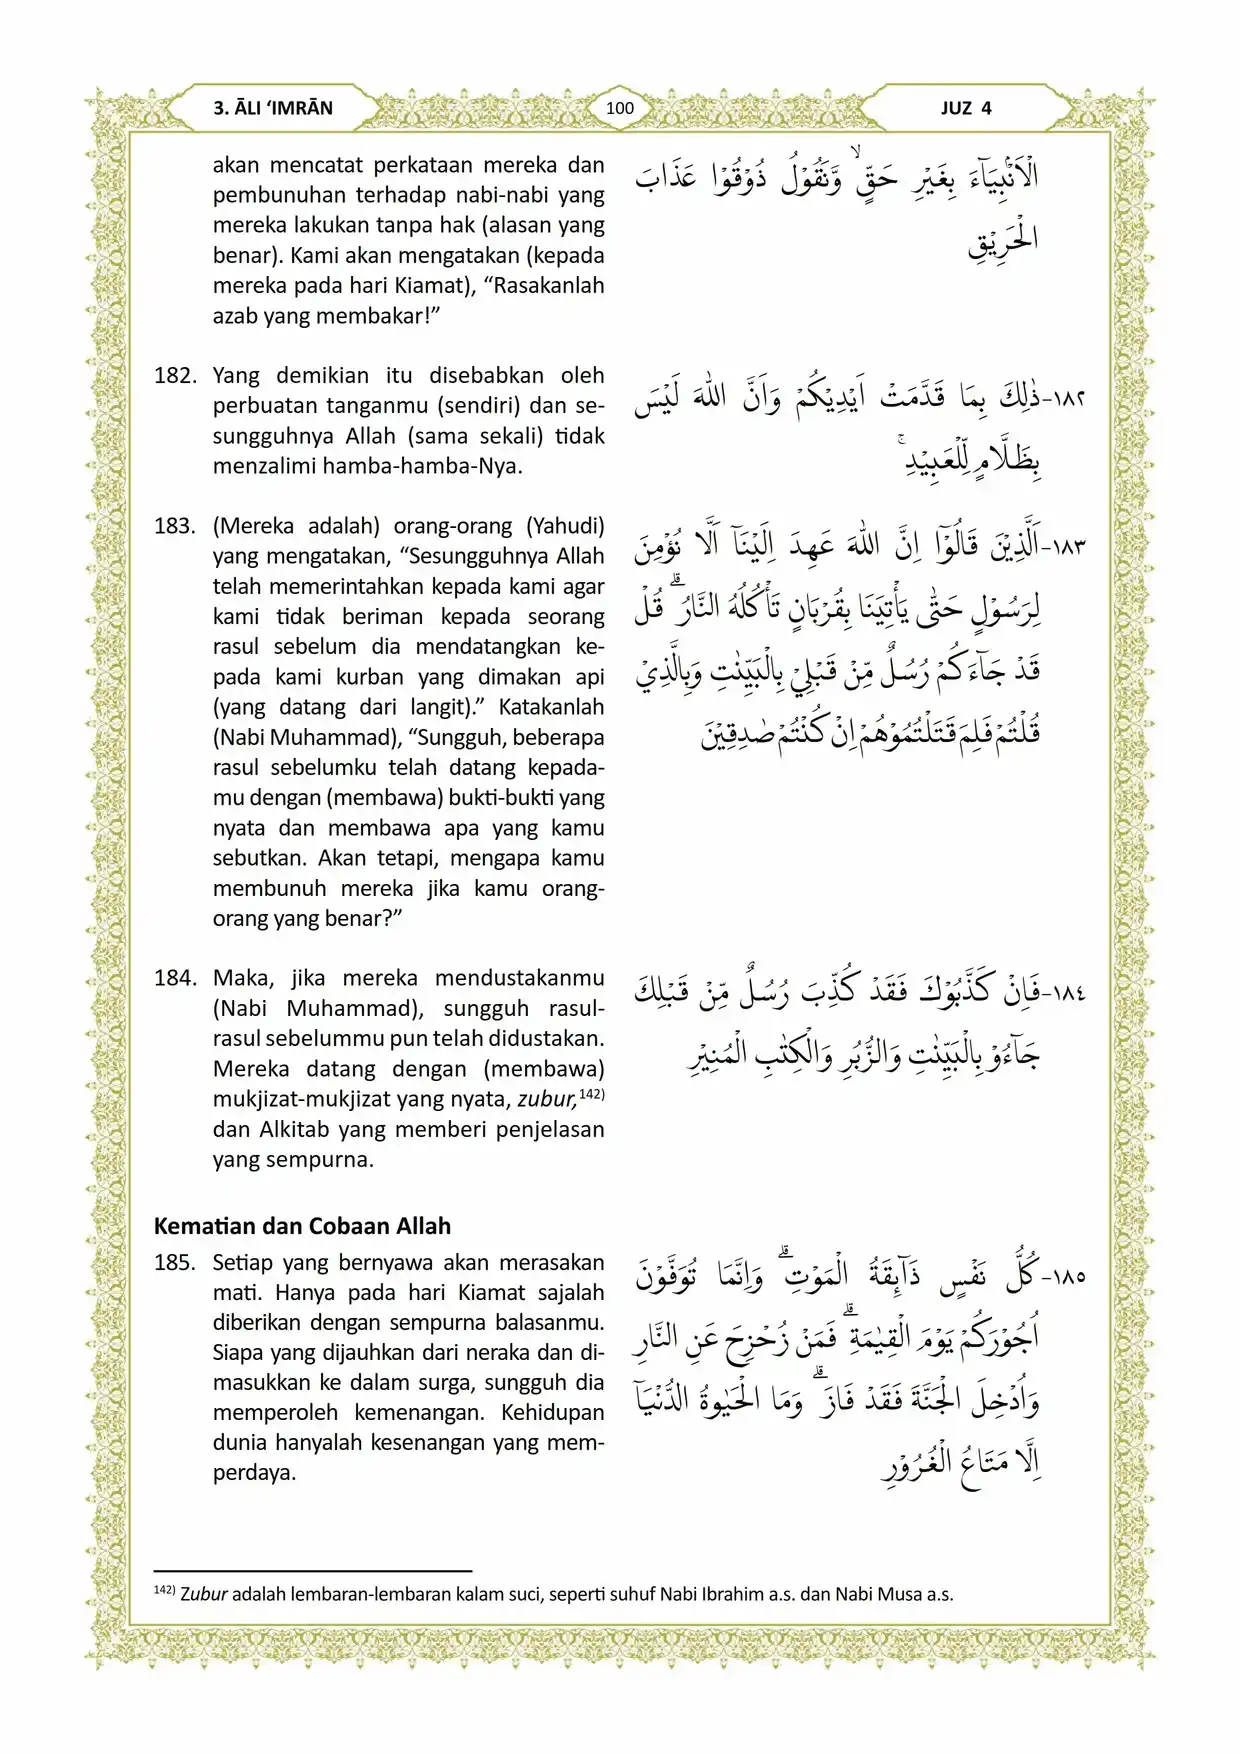 3. ĀLI ‘IMRĀN
100
JUZ 4
akan mencatat perkataan mereka dan
pembunuhan terhadap nabi-nabi yang
mereka lakukan tanpa hak (alasan yang
benar). Kami akan mengatakan (kepada
mereka pada hari Kiamat), “Rasakanlah
azab yang membakar!”
الْاَنْۢبِيَاۤءَ بِغَيْرِ حَقٍّۙ وَّنَقُوْلُ ذُوْقُوْا عَذَابَ
الْحَرِيْقِ
182. Yang demikian itu disebabkan oleh
perbuatan tanganmu (sendiri) dan se-
sungguhnya Allah (sama sekali) tidak
menzalimi hamba-hamba-Nya.
١٨٢-ذٰلِكَ بِمَا قَدَّمَتْ اَيْدِيْكُمْ وَاَنَّ اللّٰهَ لَيْسَ
بِظَلَّامٍ لِّلْعَبِيْدِۚ
183. (Mereka adalah) orang-orang (Yahudi)
yang mengatakan, “Sesungguhnya Allah
telah memerintahkan kepada kami agar
kami tidak beriman kepada seorang
rasul sebelum dia mendatangkan ke-
pada kami kurban yang dimakan api
(yang datang dari langit).” Katakanlah
(Nabi Muhammad), “Sungguh, beberapa
rasul sebelumku telah datang kepada-
mu dengan (membawa) bukti-bukti yang
nyata dan membawa apa yang kamu
sebutkan. Akan tetapi, mengapa kamu
membunuh mereka jika kamu orang-
orang yang benar?”
١٨٣-اَلَّذِيْنَ قَالُوْٓا اِنَّ اللّٰهَ عَهِدَ اِلَيْنَآ اَلَّا نُؤْمِنَ
لِرَسُوْلٍ حَتّٰى يَأْتِيَنَا بِقُرْبَانٍ تَأْكُلُهُ النَّارُۗ قُلْ
قَدْ جَاۤءَكُمْ رُسُلٌ مِّنْ قَبْلِيْ بِالْبَيِّنٰتِ وَبِالَّذِيْ
قُلْتُمْ فَلِمَ قَتَلْتُمُوْهُمْ اِنْ كُنْتُمْ صٰدِقِيْنَ
184. Maka, jika mereka mendustakanmu
(Nabi Muhammad), sungguh rasul-
rasul sebelummu pun telah didustakan.
Mereka datang dengan (membawa)
mukjizat-mukjizat yang nyata, zubur,142)
dan Alkitab yang memberi penjelasan
yang sempurna.
١٨٤-فَاِنْ كَذَّبُوْكَ فَقَدْ كُذِّبَ رُسُلٌ مِّنْ قَبْلِكَ
جَاۤءُوْ بِالْبَيِّنٰتِ وَالزُّبُرِ وَالْكِتٰبِ الْمُنِيْرِ
Kematian dan Cobaan Allah
185. Setiap yang bernyawa akan merasakan
mati. Hanya pada hari Kiamat sajalah
diberikan dengan sempurna balasanmu.
Siapa yang dijauhkan dari neraka dan di-
masukkan ke dalam surga, sungguh dia
memperoleh kemenangan. Kehidupan
dunia hanyalah kesenangan yang mem-
perdaya.
١٨٥-كُلُّ نَفْسٍ ذَاۤىِٕقَةُ الْمَوْتِۗ وَاِنَّمَا تُوَفَّوْنَ
اُجُوْرَكُمْ يَوْمَ الْقِيٰمَةِۗ فَمَنْ زُحْزِحَ عَنِ النَّارِ
وَاُدْخِلَ الْجَنَّةَ فَقَدْ فَازَۗ وَمَا الْحَيٰوةُ الدُّنْيَآ
اِلَّا مَتَاعُ الْغُرُوْرِ
142) Zubur adalah lembaran-lembaran kalam suci, seperti suhuf Nabi Ibrahim a.s. dan Nabi Musa a.s.